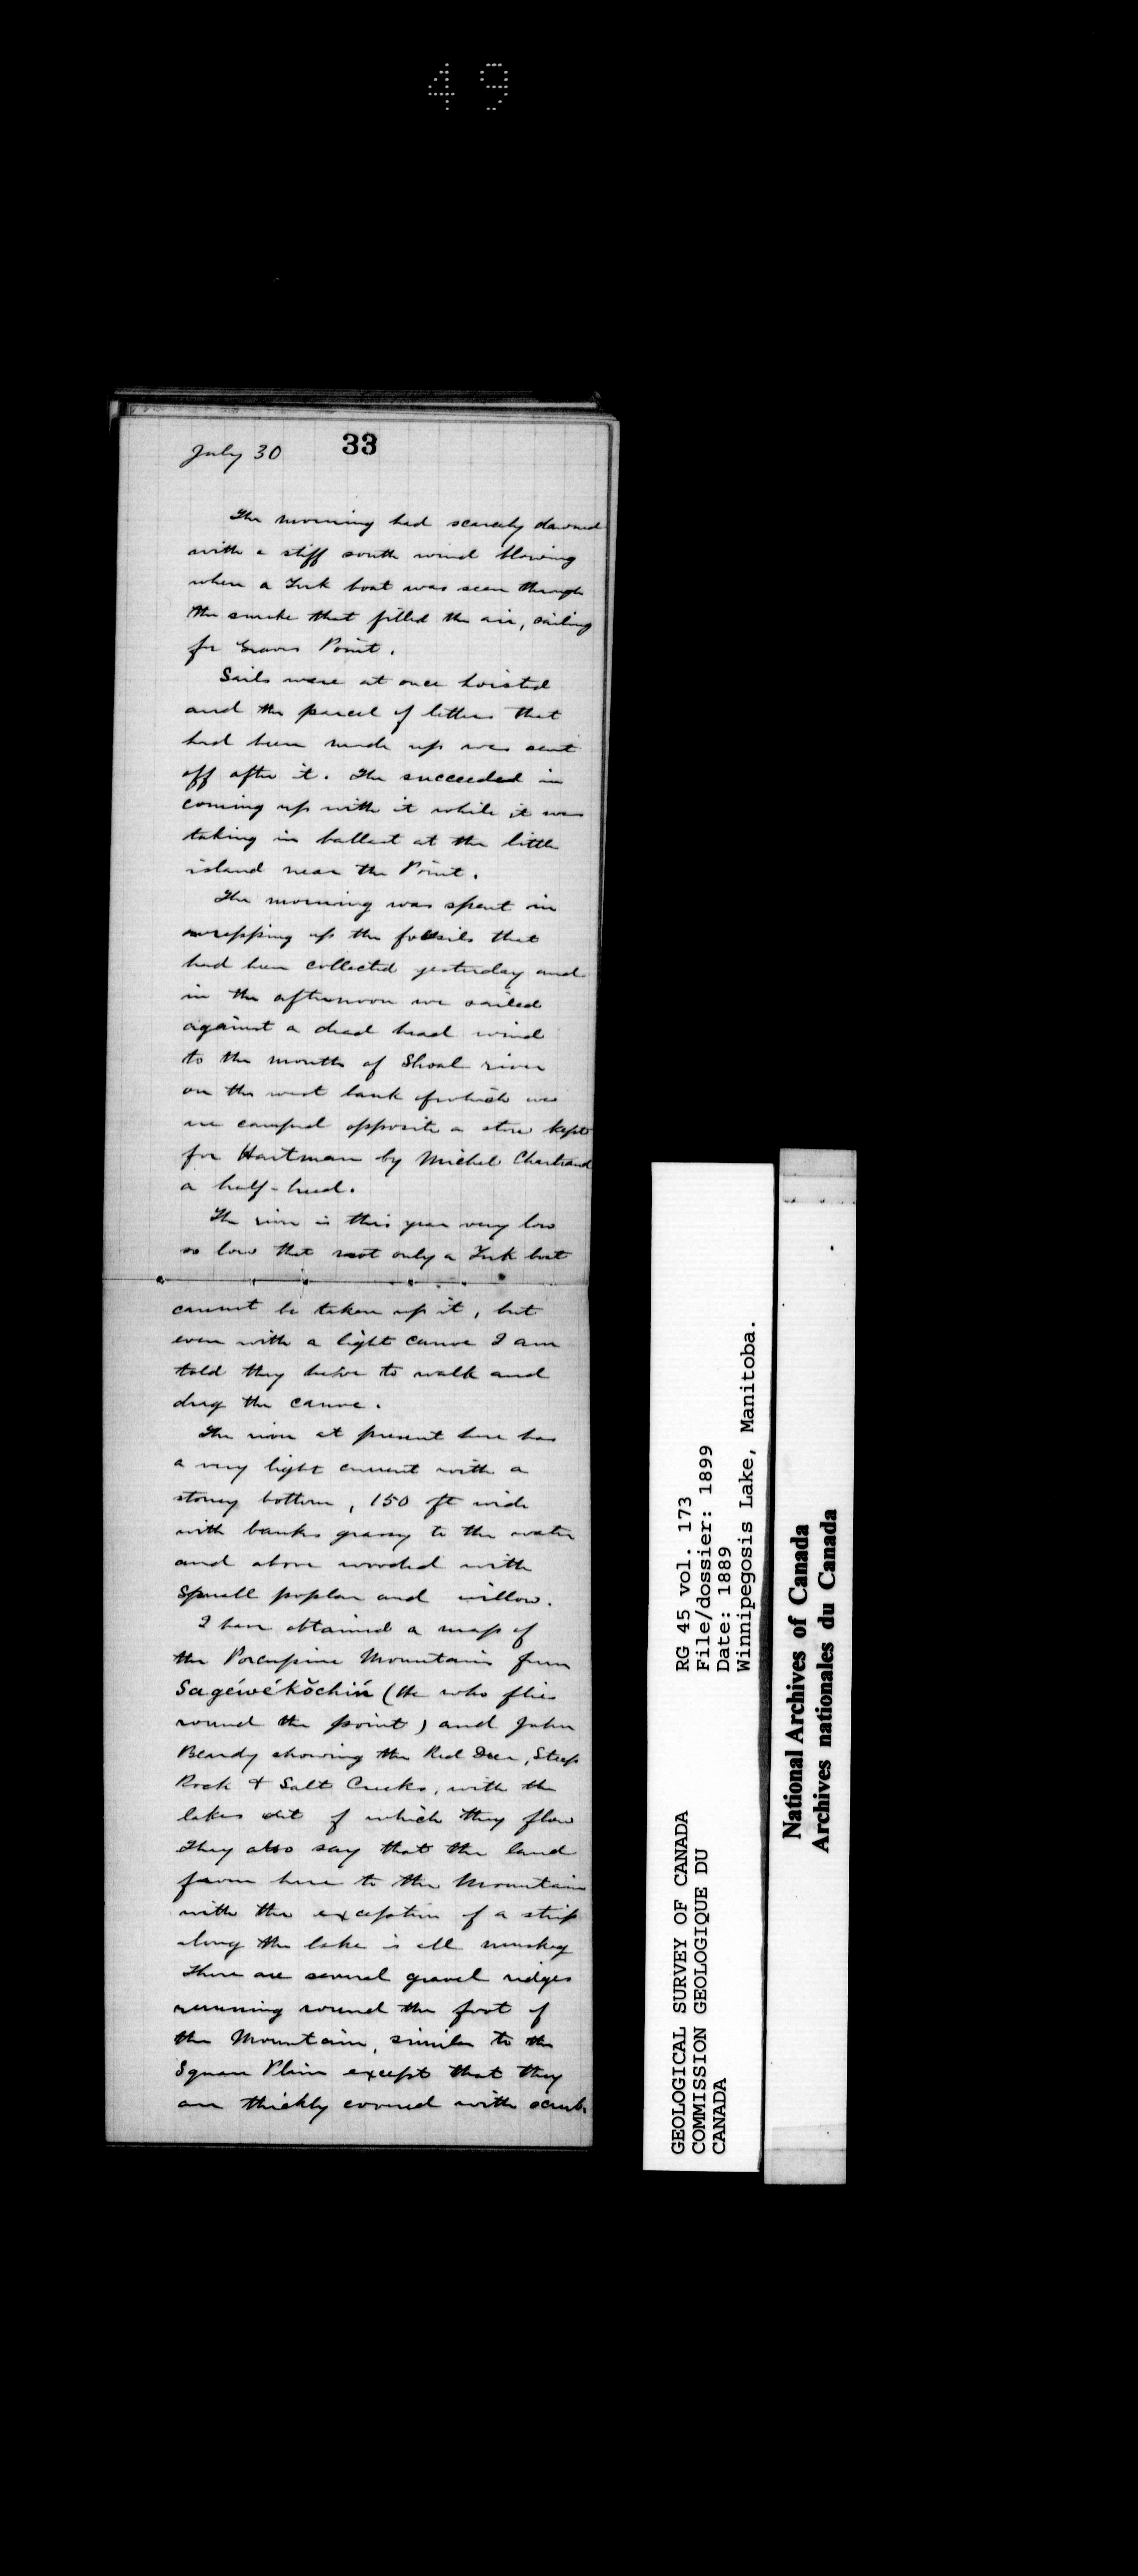 49
33
July 30
The morning had scarcely dawned
with a stiff south wind blowing
when a York boat was seen through
the smoke that filled the air, sailing
for Graves Point.
Sails were at once hoisted
and the parcel of letters that
had been made up was sent
off after it. He succeeded in
coming up with it while it was
taking in ballast at the little
island near the Point.
The morning was spent in
wrapping up the fossils that
had been collected yesterday and
in the afternoon we sailed
against a dead head wind
to the mouth of Shoal river
on the west bank of which we
we camped opposite a store kept
for Hartman by Michel Chartrand
a half-breed.
The river is this year very low
so low that not only a York boat
cannot be taken up it, but
even with a light canoe I am
told they have to walk and
drag the canoe.
The river at present here has
a very light current with a
stoney bottom, 150 ft wide
with banks grassy to the water
and above wooded with
small poplar and willow.
I have obtained a map of
the Porcupine Mountains from
Sagéwékŏchiń (He who flies
round the point) and John
Beardy showing the Red Deer, Steep
Rock & Salt Creeks, with the
lakes out of which they flow
They also say that the land
from here to the Mountain
with the exception of a strip
along the lake is all muskeg
There are several gravel ridges
running round the foot of
the Mountain, similar to the
Square Plain except that they
are thickly covered with scrub.
GEOLOGICAL SURVEY OF CANADA
COMMISSION GEOLOGIQUE DU
CANADA
RG 45 vol. 173
File/dossier: 1899
Date: 1889
Winnipegosis Lake, Manitoba.
National Archives of Canada
Archives nationales du Canada